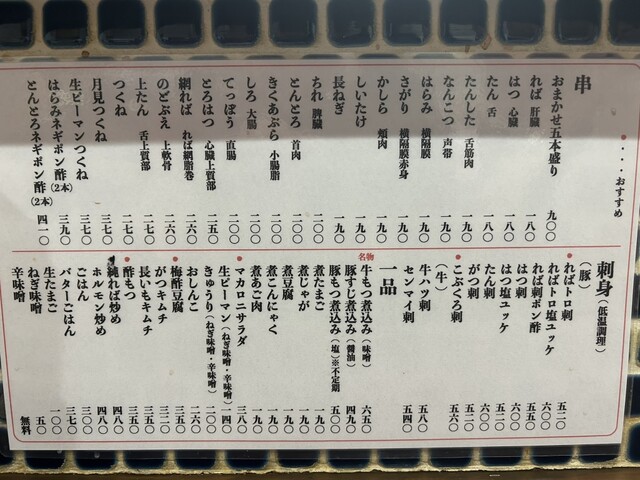 ・・・・おすすめ
串
おまかせ五本盛り 九〇〇
れば 肝臓 一八〇
はつ 心臓 一八〇
たん 舌 一八〇
たんした 舌筋肉 一九〇
なんこつ 声帯 一九〇
はらみ 横隔膜 一九〇
さがり 横隔膜赤身 一九〇
かしら 頬肉 一九〇
しいたけ 一九〇
長ねぎ 一九〇
ちれ 脾臓 二〇〇
とんとろ 首肉 二〇〇
きくあぶら 小腸脂 二〇〇
しろ 大腸 二〇〇
てっぽう 直腸 二〇〇
とろはつ 心臓上質部 二五〇
網れば れば網脂巻 二六〇
のどぶえ 上軟骨 二六〇
上たん 舌上質部 二七〇
つくね 二七〇
月見つくね 三七〇
生ピーマンつくね 三七〇
はらみネギポン酢(2本) 三九〇
とんとろネギポン酢(2本) 四一〇
刺身(低温調理)
(豚)
ればトロ刺 五二〇
ればトロ塩ユッケ 六〇〇
れば刺ポン酢 五五〇
はつ刺 五二〇
はつ塩ユッケ 六〇〇
たん刺 六〇〇
がつ刺 五二〇
こぶくろ刺 五六〇
(牛)
牛ハツ刺 五八〇
センマイ刺 五四〇
一品
名物 牛もつ煮込み(味噌) 六五〇
豚すじ煮込み(醤油) 四九〇
豚もつ煮込み(塩)※不定期 五〇〇
煮たまご 一九〇
煮じゃが 一九〇
煮豆腐 一九〇
煮こんにゃく 一九〇
煮あご肉 一九〇
マカロニサラダ 三八〇
生ピーマン(ねぎ味噌・辛味噌) 一四〇
きゅうり(ねぎ味噌・辛味噌) 二〇〇
おしんこ 二六〇
梅酢豆腐 三五〇
がつキムチ 三五〇
長いもキムチ 三二〇
酢もつ 三五〇
純れば炒め 四八〇
ホルモン炒め 四八〇
ごはん 三〇〇
バターごはん 三七〇
生たまご 一〇〇
ねぎ味噌
辛味噌 無料